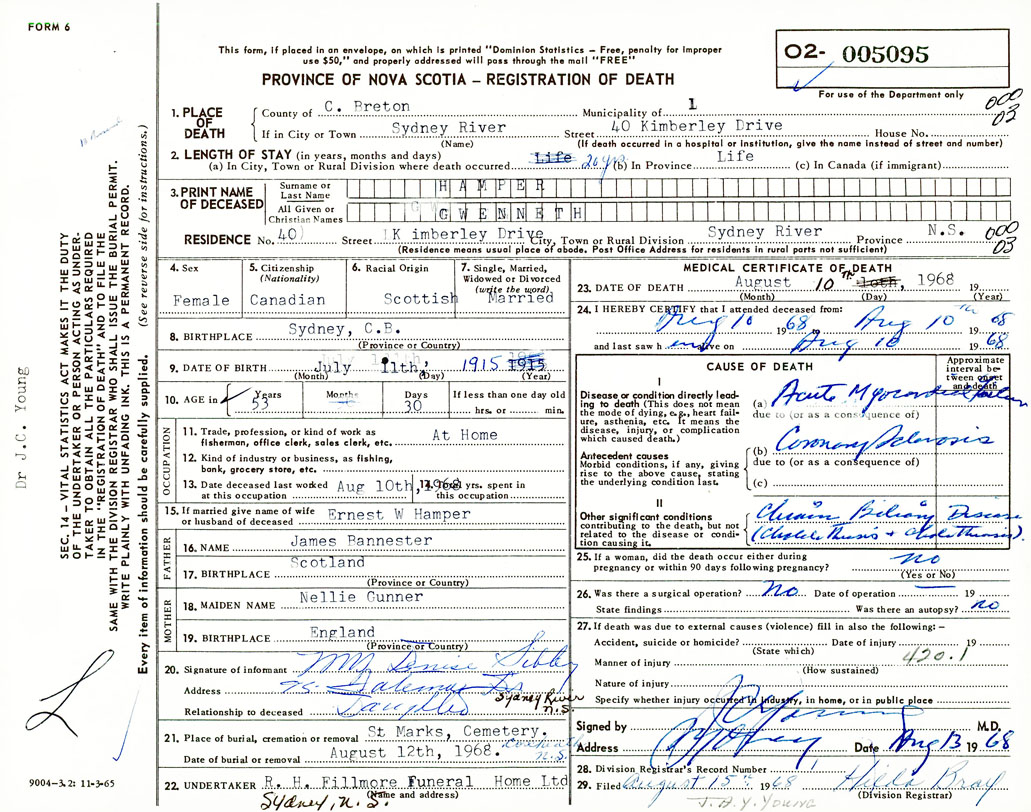 FORM 6
This form, if placed in an envelope, on which is printed "Dominion Statistics – Free, penalty for improper
use $50," and properly addressed will pass through the mail "FREE"
PROVINCE OF NOVA SCOTIA – REGISTRATION OF DEATH
O2- 005095
For use of the Department only
000
02
1. PLACE OF DEATH
County of C. Breton Municipality of 1
If in City or Town Sydney River Street 40 Kimberley Drive House No.
(Name) (If death occurred in a hospital or institution, give the name instead of street and number)
2. LENGTH OF STAY (in years, months and days)
(a) In City, Town or Rural Division where death occurred Life 20 yrs (b) In Province Life (c) In Canada (if immigrant)
3. PRINT NAME OF DECEASED
Surname or Last Name HAMPER
All Given or Christian Names GWENNETH
RESIDENCE No. 40 Street K imberley Drive City, Town or Rural Division Sydney River Province N.S.
000
03
(Residence means usual place of abode. Post Office Address for residents in rural parts not sufficient)
4. Sex
Female
5. Citizenship
(Nationality)
Canadian
6. Racial Origin
Scottish
7. Single, Married,
Widowed or Divorced
(write the word)
Married
8. BIRTHPLACE Sydney, C.B.
(Province or Country)
9. DATE OF BIRTH July 11th, 1915 1915
(Month) (Day) (Year)
10. AGE in Years Months Days If less than one day old
53 30 hrs. or min.
OCCUPATION
11. Trade, profession, or kind of work as
fisherman, office clerk, sales clerk, etc. At Home
12. Kind of industry or business, as fishing,
bank, grocery store, etc.
13. Date deceased last worked
at this occupation Aug 10th, 1968
14. Total yrs. spent in
this occupation
15. If married give name of wife
or husband of deceased Ernest W Hamper
FATHER
16. NAME James Bannester
17. BIRTHPLACE Scotland
(Province or Country)
MOTHER
18. MAIDEN NAME Nellie Gunner
19. BIRTHPLACE England
(Province or Country)
20. Signature of informant Denise Sibley
Address 95
Sydney River
N.S.
Relationship to deceased Daughter
21. Place of burial, cremation or removal St Marks, Cemetery.
Date of burial or removal August 12th, 1968. N.S.
22. UNDERTAKER R. H. Fillmore Funeral Home Ltd
(Name and address)
Sydney, N.S.
MEDICAL CERTIFICATE OF DEATH
23. DATE OF DEATH August 10th 10th, 1968 19
(Month) (Day) (Year)
24. I HEREBY CERTIFY that I attended deceased from:
Aug 10 1968 Aug 10th 1968
and last saw h alive on Aug 10 1968
CAUSE OF DEATH
Approximate
interval be-
tween onset
and death
I
Disease or condition directly lead-
ing to death (This does not mean
the mode of dying, e.g., heart fail-
ure, asthenia, etc. It means the
disease, injury, or complication
which caused death.)
(a) Acute Myocardial Failure
due to (or as a consequence of)
Antecedent causes
Morbid conditions, if any, giving
rise to the above cause, stating
the underlying condition last.
(b) Coronary Sclerosis
due to (or as a consequence of)
(c)
II
Other significant conditions
contributing to the death, but not
related to the disease or condi-
tion causing it.
Biliary Disease
25. If a woman, did the death occur either during
pregnancy or within 90 days following pregnancy? no
(Yes or No)
26. Was there a surgical operation? No. Date of operation 19
State findings Was there an autopsy? no
27. If death was due to external causes (violence) fill in also the following: –
Accident, suicide or homicide? Date of injury 19
(State which)
Manner of injury 420.1
(How sustained)
Nature of injury
Specify whether injury occurred in industry, in home, or in public place
Signed by J C Young M.D.
Address Sydney Date Aug 13 1968
28. Division Registrar's Record Number
29. Filed August 15th 1968 Hilda Bray
(Division Registrar)
J.H.Y. YOUNG
Dr J.C. Young
SEC. 14 – VITAL STATISTICS ACT MAKES IT THE DUTY
OF THE UNDERTAKER OR PERSON ACTING AS UNDER-
TAKER TO OBTAIN ALL THE PARTICULARS REQUIRED
IN THE "REGISTRATION OF DEATH" AND TO FILE THE
SAME WITH THE DIVISION REGISTRAR WHO SHALL ISSUE THE BURIAL PERMIT.
WRITE PLAINLY WITH UNFADING INK. THIS IS A PERMANENT RECORD.
Every item of information should be carefully supplied. (See reverse side for instructions.)
9004-3.2: 11-3-65